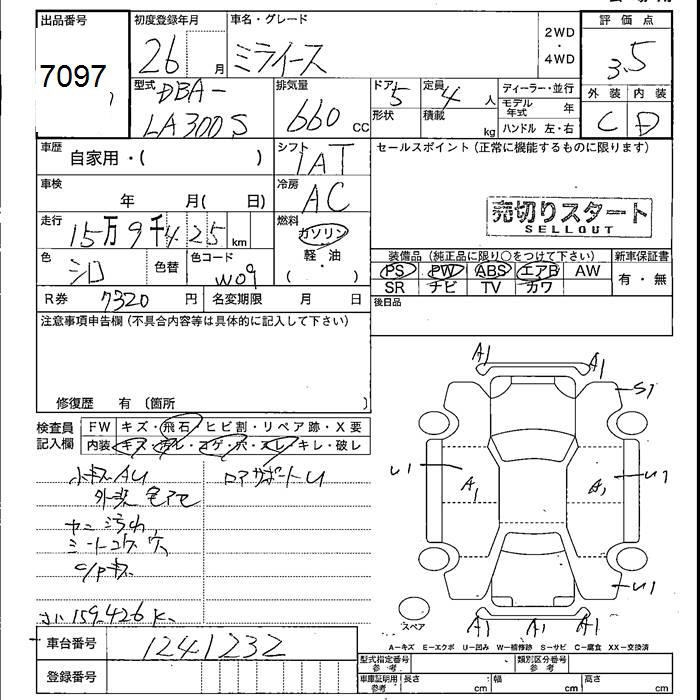 出品番号
7097
初度登録年月
26 月
車名・グレード
ミライース
2WD
・
4WD
評価点
3.5
外装 内装
C D
型式
DBA-
LA300S
排気量
660 cc
ドア
5
形状
定員
4 人
積載
kg
ディーラー・並行
モデル年式 年
ハンドル 左・右
車歴
自家用・( )
シフト
IAT
車検
年 月( 日)
冷房
AC
走行
15万9千425 km
燃料
ガソリン
軽油
( )
色
シロ
色替
色コード
W09
R券 7320 円
名変期限 月 日
セールスポイント (正常に機能するものに限ります)
売切りスタート
SELLOUT
装備品 (純正品に限り○をつけて下さい)
PS PW ABS エアB AW
SR ナビ TV カワ
新車保証書
有・無
後日品
注意事項申告欄 (不具合内容等は具体的に記入して下さい)
修復歴 有 (箇所 )
検査員
記入欄
FW キズ・飛石・ヒビ割・リペア跡・X要
内装 キズ・汚レ・コゲ・穴・スレ・キレ・破レ
小キズAU
ロアサポートU
ヤニ汚れ
シートコゲ穴
C/Pキズ
159.426K
車台番号
1241232
登録番号
A1
A1
S1
U1
A1
A1
U1
U1
A1
A1
A1
スペア
A-キズ E-エクボ U-凹み W-補修跡 S-サビ C-腐食 XX-交換済
型式指定番号
参考
類別区分番号
参考
車庫証明用
参考
長さ cm
幅 cm
高さ cm